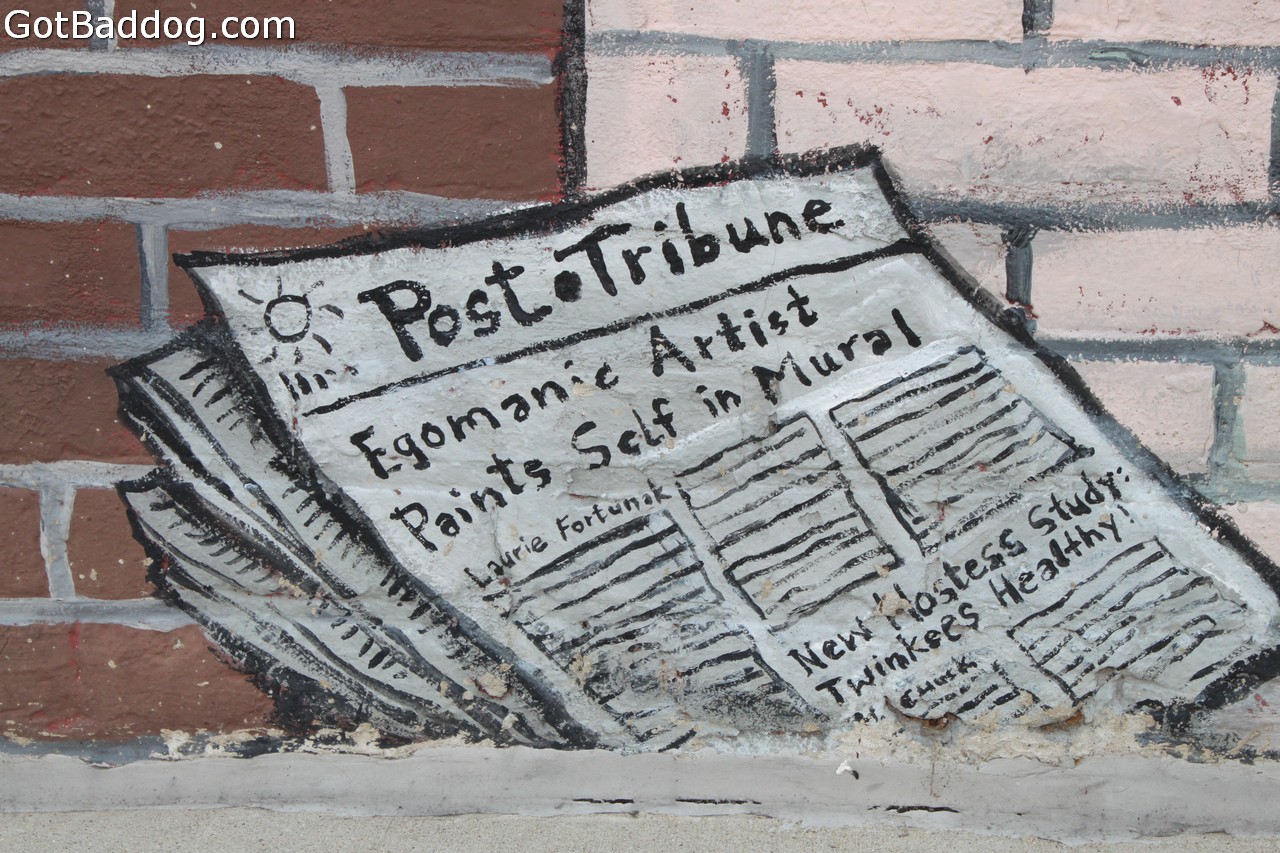 GotBaddog.com
Post•Tribune
Egomanic Artist
Paints Self in Mural
Laurie Fortunak
New Hostess Study:
Twinkees Healthy!
M. Chuck